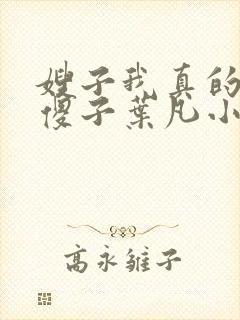 嫂子我真的
傻子葉凡小
高永雏子